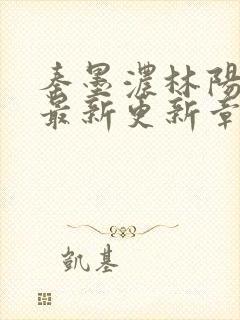 秦墨濃林陽
最新更新章
凱基